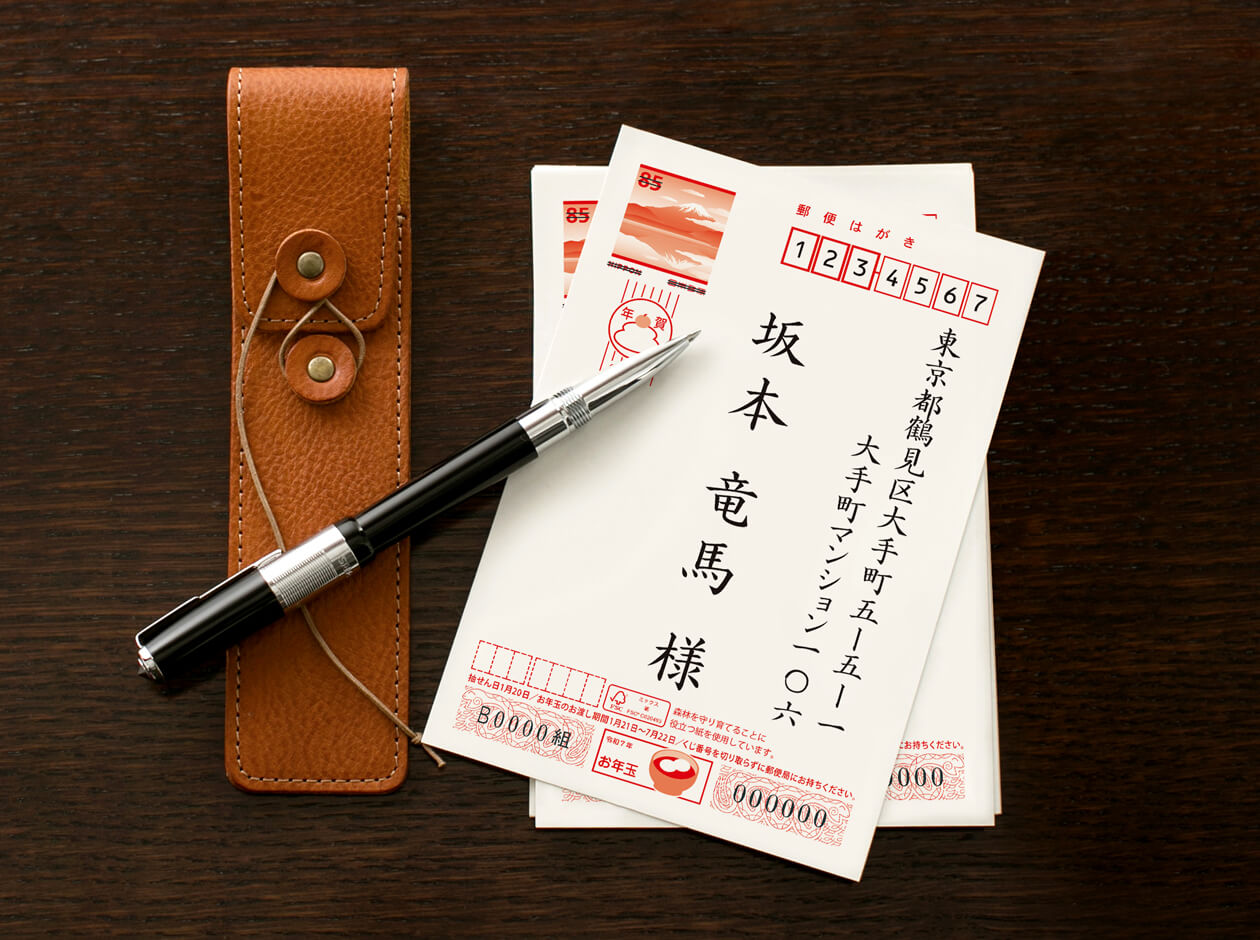 85
NIPPON
郵便はがき
1234567
年賀
東京都鶴見区大手町五ー五ー一
大手町マンション一〇六
坂本 竜馬 様
抽せん日1月20日／お年玉のお渡し期間1月21日〜7月22日／くじ番号を切り取らずに郵便局にお持ちください。
FSC
ミックス
紙
FSC® C020453
森林を守り育てることに
役立つ紙を使用しています。
B0000組
令和7年
お年玉
000000
85
にお持ちください。
000